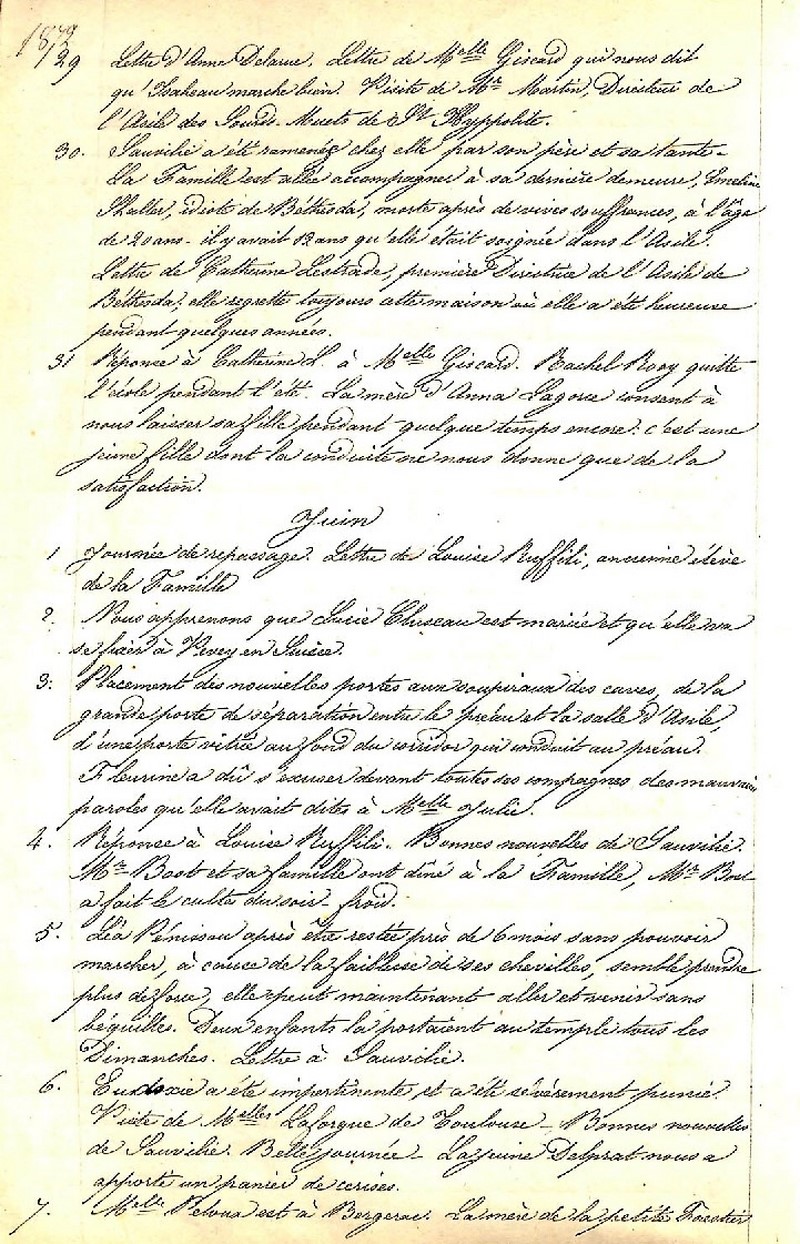 18
29 Lettre d'Anna Delarue. Lettre de Melle Giscard qui nous dit
qu'Isabeau marche bien. Visite de Mr Martin, Directeur de
l'Asile des Sourds-Muets de St Hyppolite.
30. Sauvilié a été ramenée chez elle par son père et sa tante.
La Famille est allée accompagner à sa dernière demeure, Emeline
idiote de Béthesda, morte après de vives souffrances, à l'âge
de 20 ans - il y avait 12 ans qu'elle était soignée dans l'Asile.
Lettre de Catherine Lestrade, première Directrice de l'Asile de
Béthesda; elle regrette toujours cette maison où elle a été heureuse
pendant quelques années.
31 Réponse à Catherine L. à Melle Giscard. Rachel Rooy quitte
l'école pendant l'été. La mère d'Anna Lagorce consent à
nous laisser sa fille pendant quelque temps encore: c'est une
jeune fille dont la conduite ne nous donne que de la
satisfaction.
Juin
1 Journée de repassage. Lettre de Louise Ruffili, ancienne élève
de la Famille
2. Nous apprenons que Lucie Cluseau est mariée et qu'elle va
se fixer à Vevey en Suisse.
3. Placement des nouvelles portes aux soupiraux des caves, de la
grande porte de séparation entre le préau et la salle d'Asile,
d'une porte vitrée au fond du corridor qui conduit au préau.
Fleurine a dû s'excuser devant toutes ses compagnes des mauvaises
paroles qu'elle avait dites à Melle Julie.
4. Réponse à Louise Ruffili. Bonnes nouvelles de Sauvilié.
Mr Bost et sa famille ont dîné à la Famille, Mr Bost
a fait le culte du soir - froid.
5. Léa Pénissou après être restée près de 6 mois sans pouvoir
marcher, à cause de la faiblesse de ses chevilles, semble prendre
plus de force, elle peut maintenant aller et venir sans
béquilles. Deux enfants la portaient au temple tous les
Dimanches. Lettre à Sauvilié.
6. Eudoxie a été impertinente et a été sévèrement punie.
Visite de Melles Laforgue de Toulouse - Bonnes nouvelles
de Sauvilié. Belle journée - La jeune Delprat nous a
apporté un panier de cerises.
7. Melle Peloux est à Bergerac. La mère de la petite Forestier